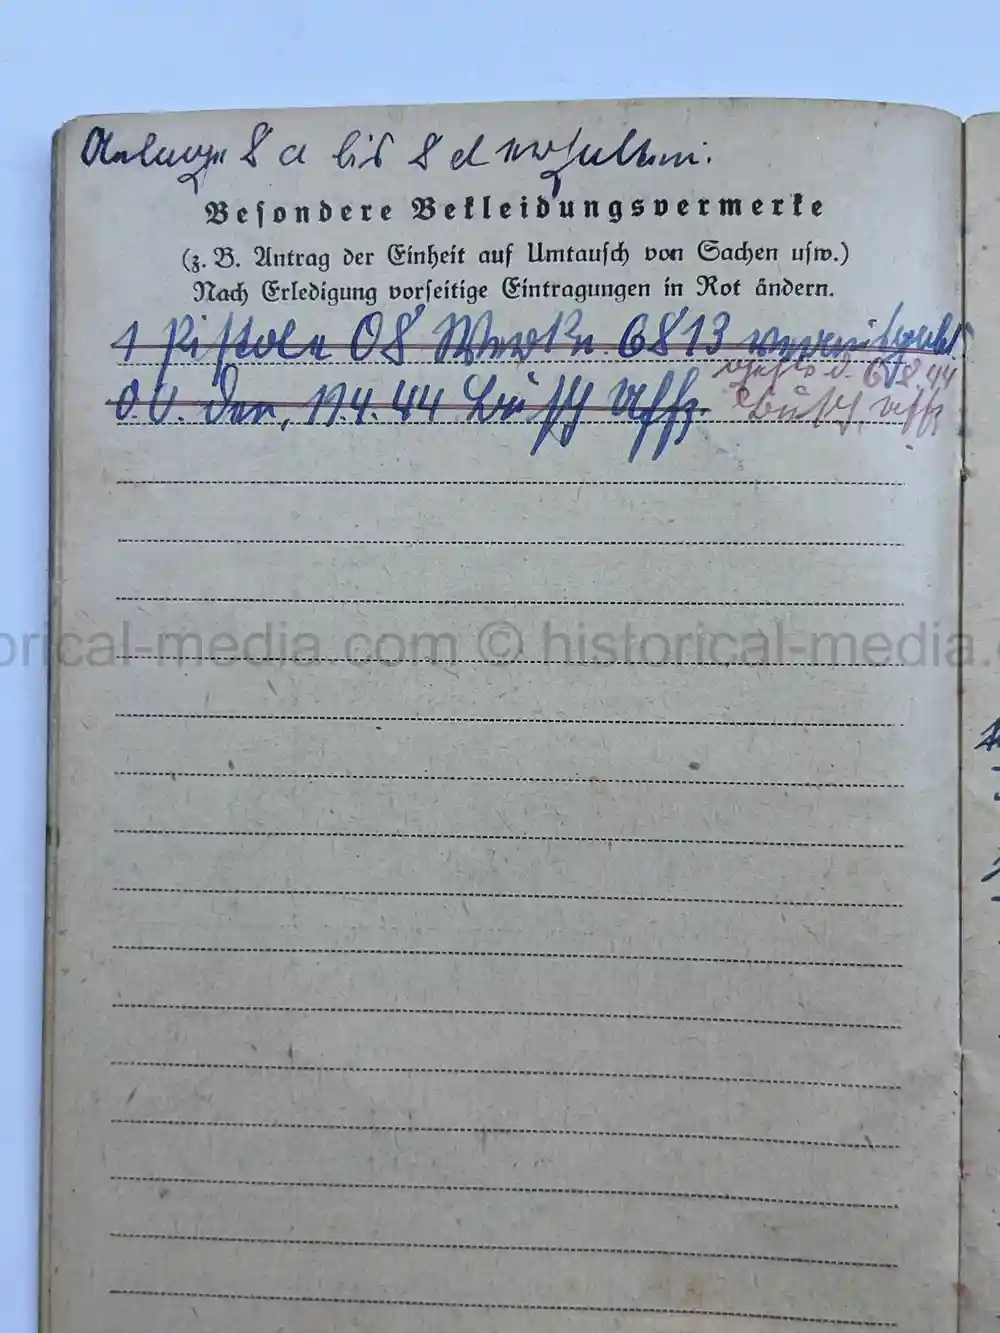 Anlage 8 a bis 8 d erhalten.
Besondere Bekleidungsvermerke
(z. B. Antrag der Einheit auf Umtausch von Sachen usw.)
Nach Erledigung vorseitige Eintragungen in Rot ändern.
1 Pistole 08 Werk Nr. 6813
O.U. den, 17.4.44 Uffz.
44
Uffz
orical-media.com © historical-media.